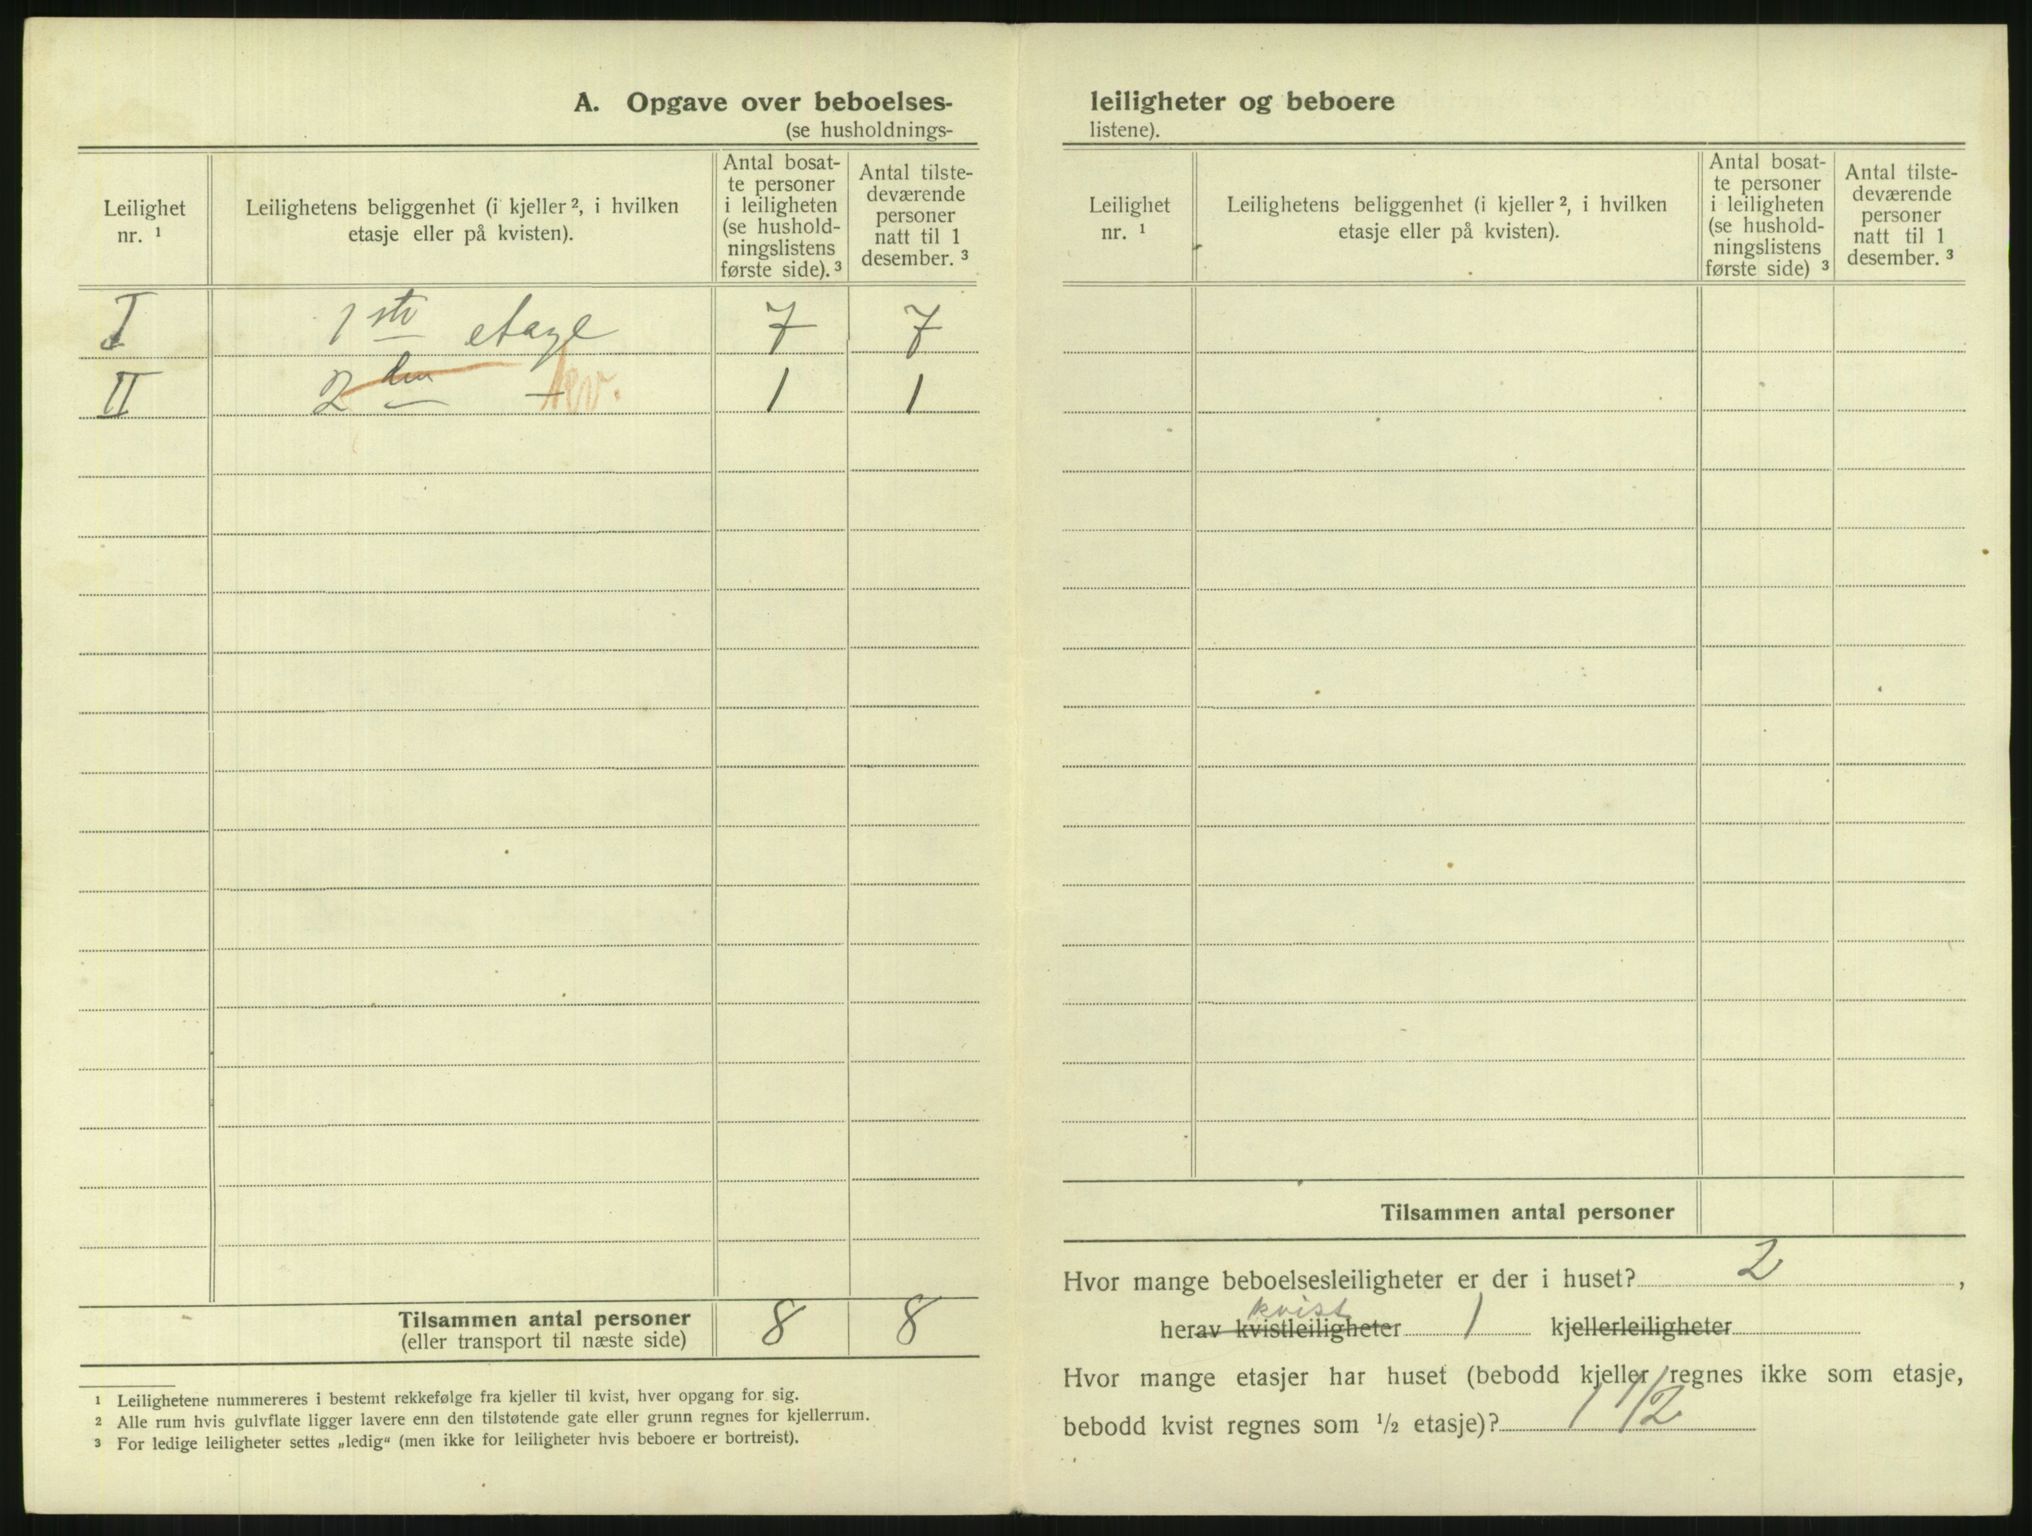 A. Opgave over beboelses-
(se husholdnings-
Leilighet
nr. ¹
Leilighetens beliggenhet (i kjeller ², i hvilken
etasje eller på kvisten).
Antal bosat-
te personer
i leiligheten
(se hushold-
ningslistens
første side). ³
Antal tilste-
deværende
personer
natt til 1
desember. ³
I 1ste etage 7 7
II 2den 1 1
Tilsammen antal personer 8 8
(eller transport til næste side)
¹ Leilighetene nummereres i bestemt rekkefølge fra kjeller til kvist, hver opgang for sig.
² Alle rum hvis gulvflate ligger lavere enn den tilstøtende gate eller grunn regnes for kjellerrum.
³ For ledige leiligheter settes „ledig“ (men ikke for leiligheter hvis beboere er bortreist).
leiligheter og beboere
listene).
Leilighet
nr. ¹
Leilighetens beliggenhet (i kjeller ², i hvilken
etasje eller på kvisten).
Antal bosat-
te personer
i leiligheten
(se hushold-
ningslistens
første side) ³
Antal tilste-
deværende
personer
natt til 1
desember. ³
Tilsammen antal personer
Hvor mange beboelsesleiligheter er der i huset? 2,
kvist
herav kvistleiligheter 1 kjellerleiligheter
Hvor mange etasjer har huset (bebodd kjeller regnes ikke som etasje,
bebodd kvist regnes som ½ etasje)? 1 1/2